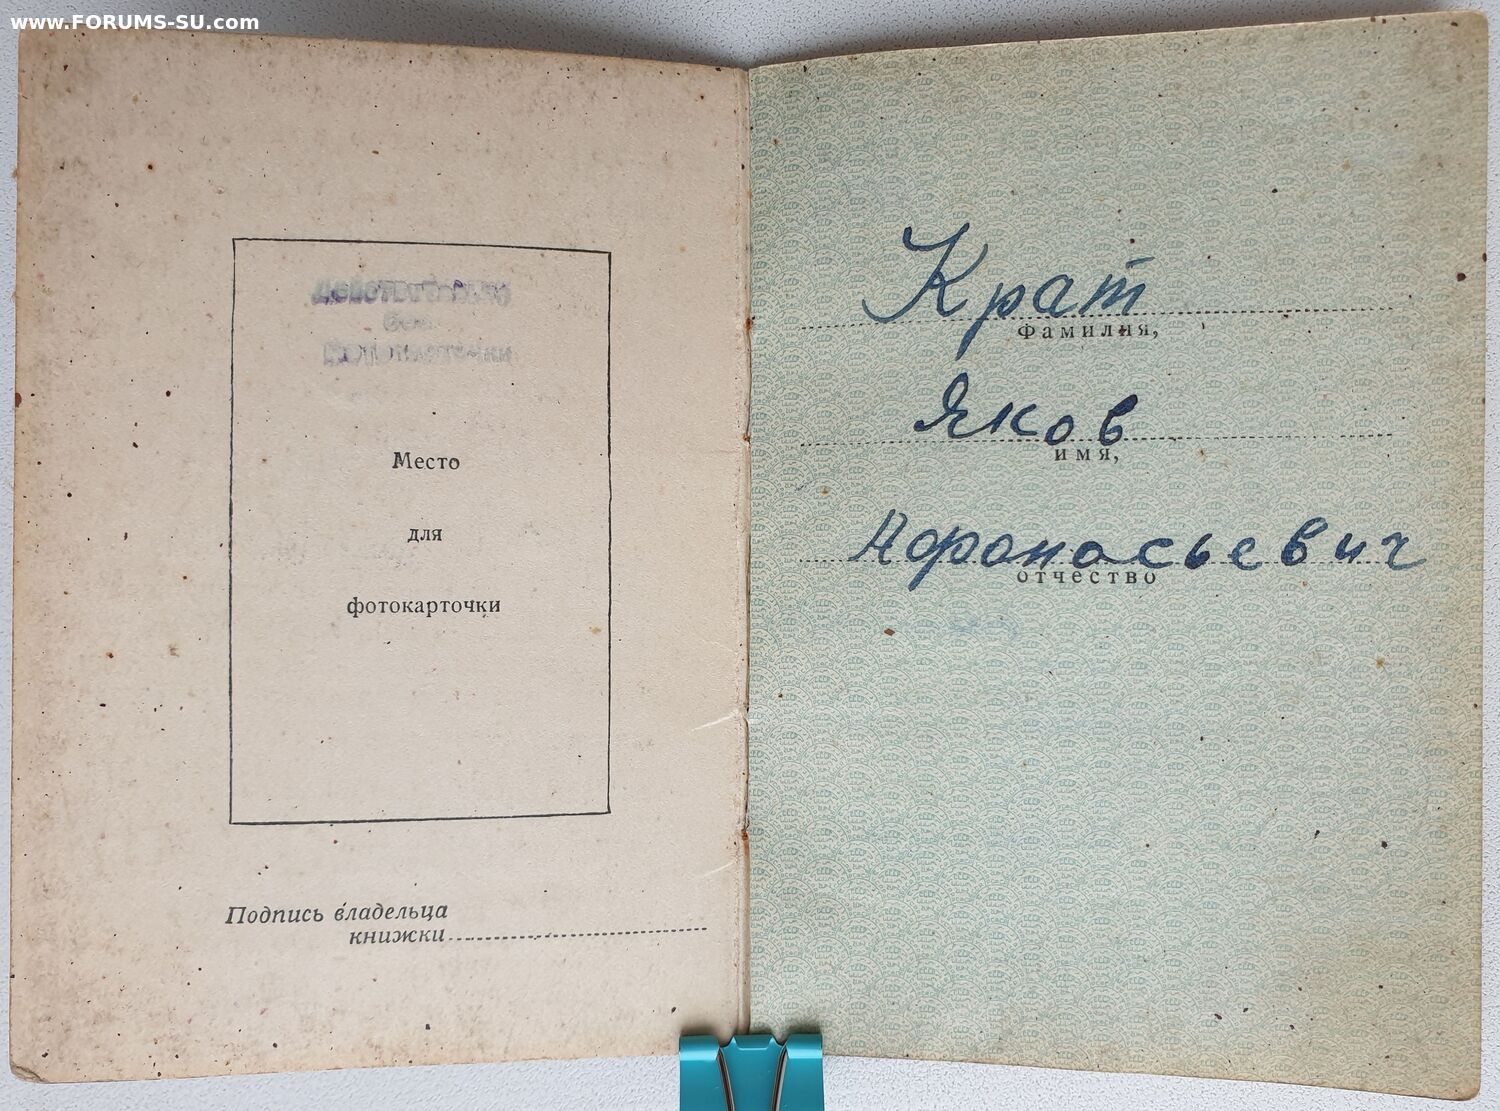 www.FORUMS-SU.com
Действительно
без
фотокарточки
Место
для
фотокарточки
Подпись владельца
книжки
Крат
Фамилия,
Яков
имя,
Афонасьевич
отчество